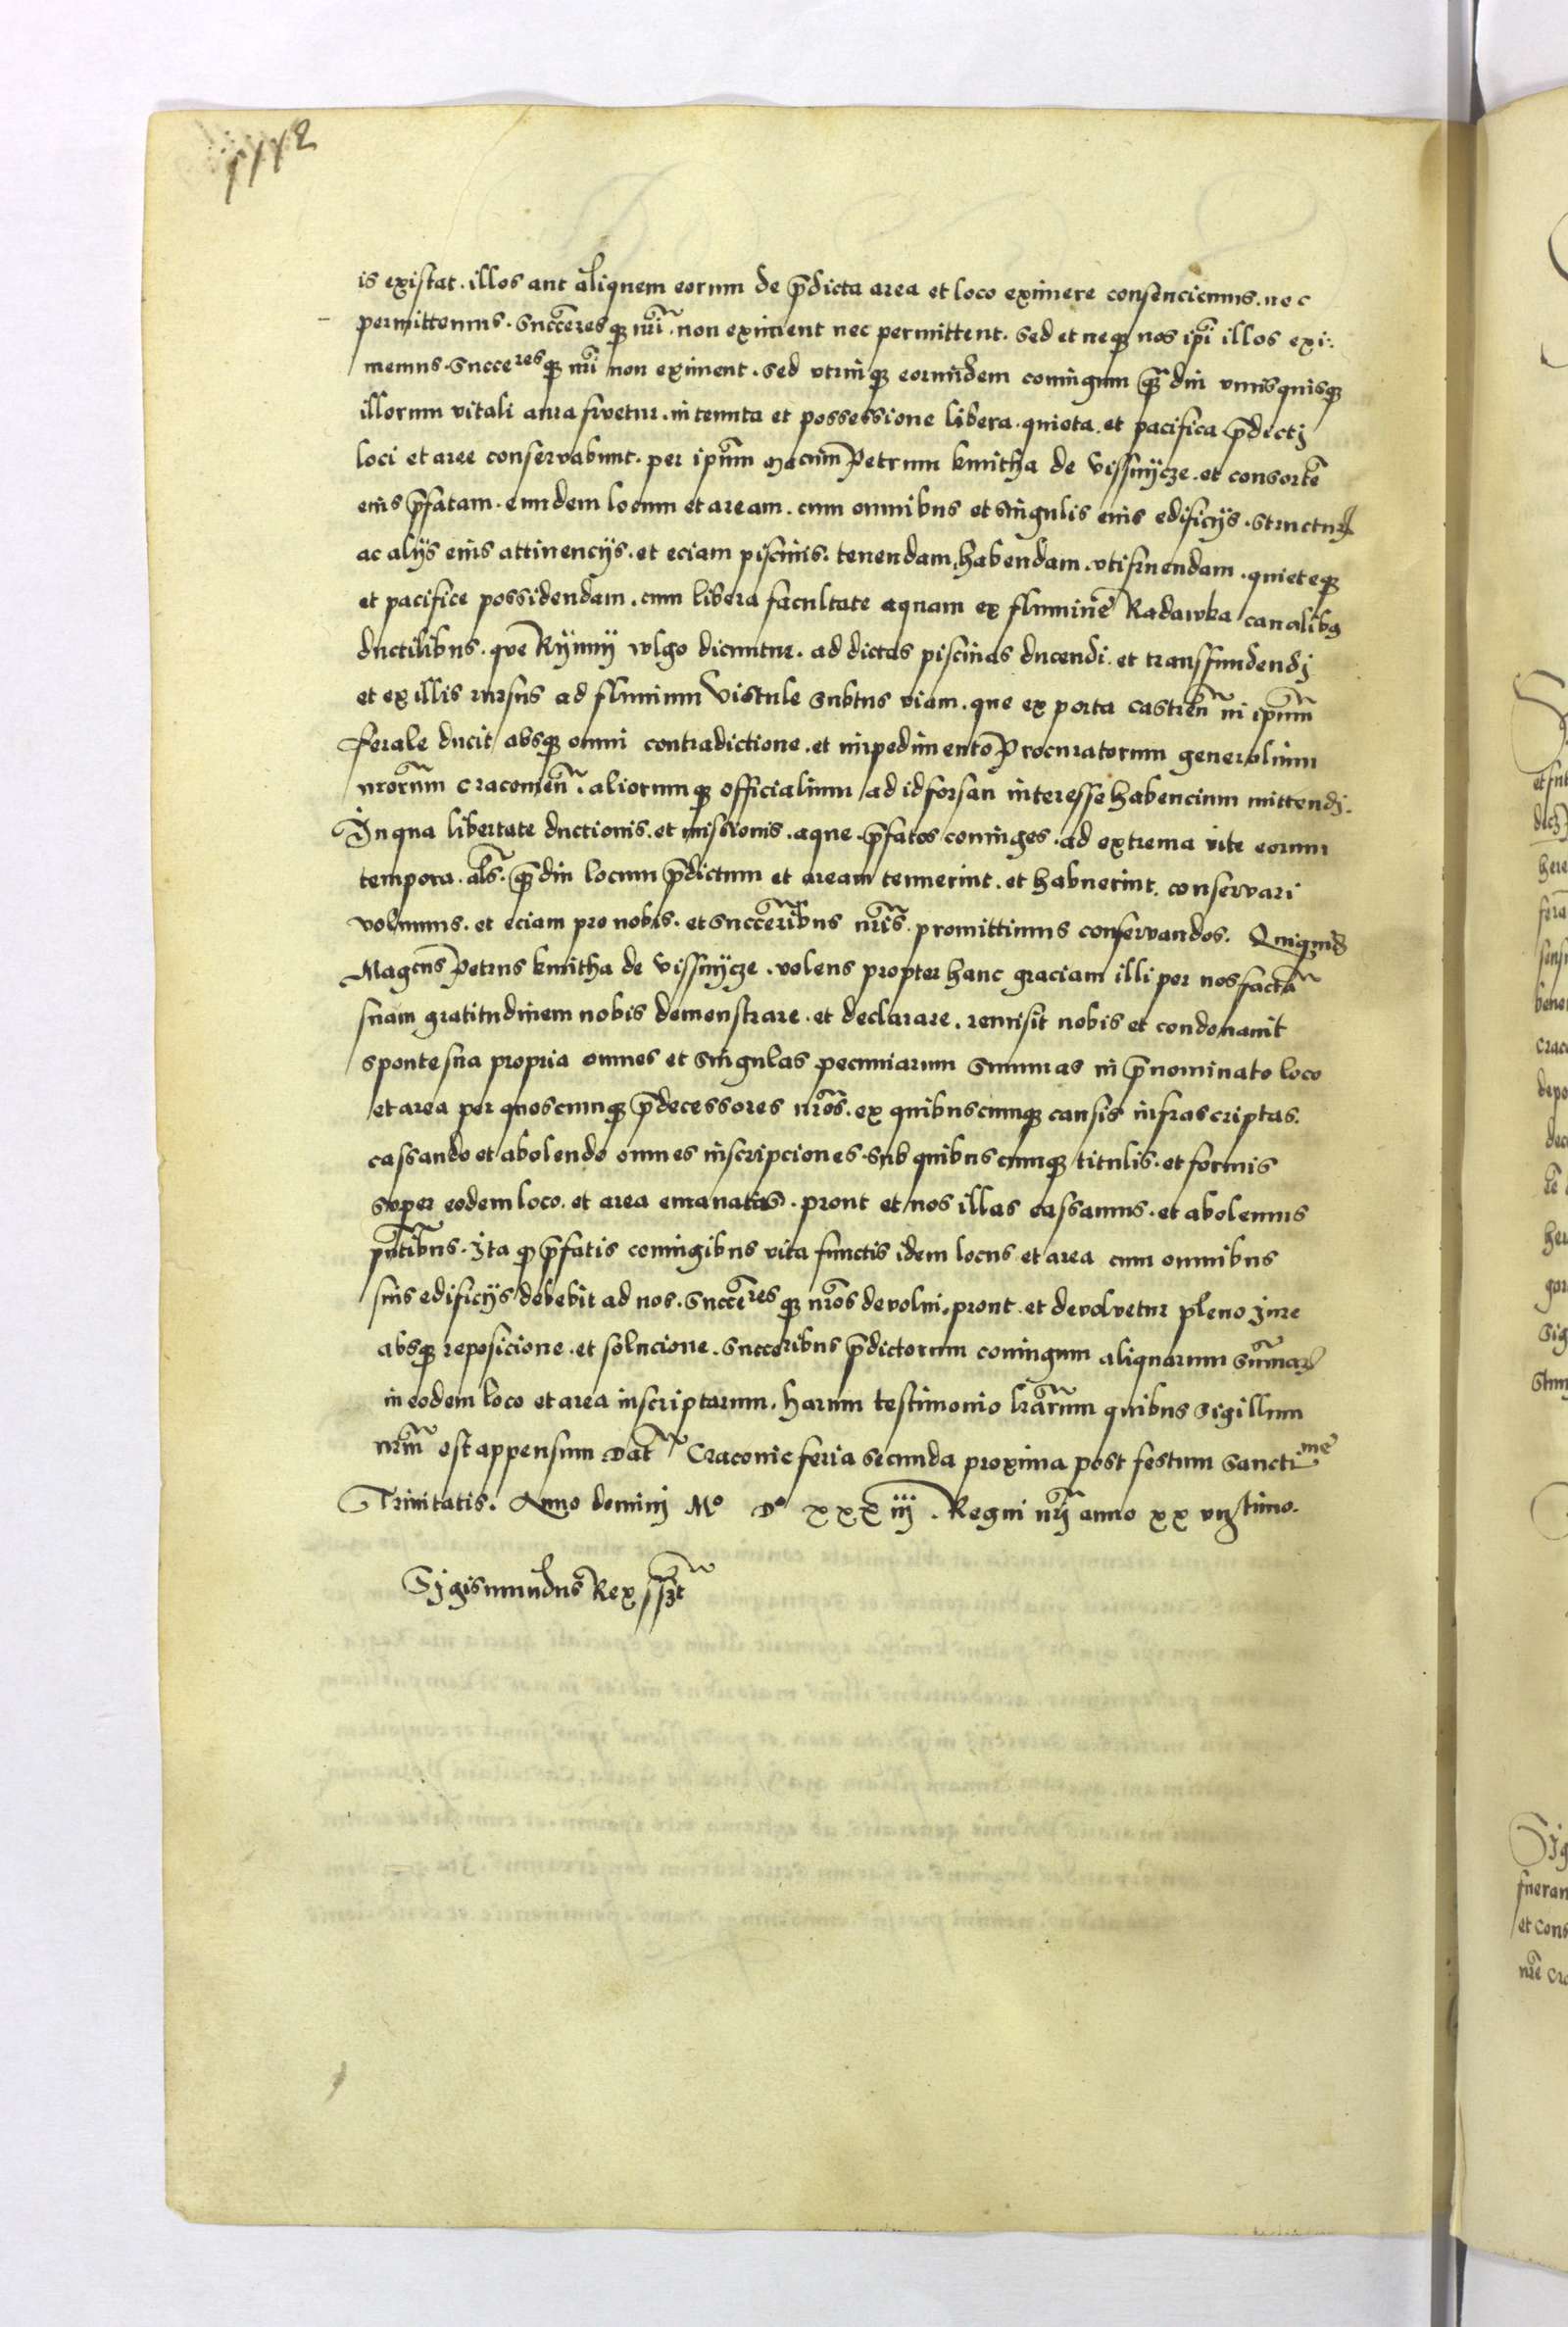 is existat. illos aut aliquem eorum de p̄dicta area et loco eximere consenciemus. nec
permittemus. Succ̄eresq; nr̄i. non eximent nec permittent. Sed et neq; nos ip̄i illos exi-
memus. Succeresq; nr̄i non eximent. Sed utrūq; eorundem coniugum q̄diu unusquisq;
illorum vitali aura fruetur. in tenuta et possessione libera. quieta. et pacifica p̄dictj
loci et aree conservabunt. per ip̄um Mag̅cum Petrum kmitha de Vissnycze. et consortē
eius p̄fatam. eundem locum et aream. cum omnibus et singulis eius edificijs. structur̄
ac alijs eius attinencijs. et eciam piscinis. tenendam, habendam. utifruendam. quieteq;
et pacifice possidendam. cum libera facultate aquam ex flumine Radawka canalibꝫ
ductilibus. que Rynny vlgo dicuntur. ad dictas piscinas ducendi. et transfundendj
et ex illis rursus ad fluuium Vistule subtus viam. que ex porta castren̄ in ip̄um
ferale ducit absq; omni contradictione. et impedimento Procuratorum generalium
nr̄orum Cracouien̄. aliorumq; officialium ad id forsan interesse habencium mittendj.
In qua libertate ductionis. et missionis. aque. p̄fatos coniuges. ad extrema vite eorum
tempora. al̄s. q̄diu locum p̄dictum et aream tenuerint. et habuerint. conservari
volumus. et eciam pro nobis. et succ̄eribus nr̄is. promittimus conservandos. Quiquid̄
Magcus Petrus kmitha de Vissnycze. volens propter hanc graciam illi per nos factā
suam gratitudinem nobis demonstrare. et declarare. remisit nobis et condonauit
sponte sua propria omnes et singulas pecuniarum summas in p̄nominato loco
et area per quoscunq; p̄decessores nr̄os. ex quibuscunq; causis infrascriptas.
cassando et abolendo omnes inscripciones. sub quibuscunq; titulis. et formis
super eodem loco. et area emanatas. prout et nos illas cassamus. et abolemus
pn̄tibus. Ita q; p̄fatis coniugibus vita functis idem locus et area cum omnibus
suis edificijs debebit ad nos. succ̄eresq; nr̄os devolui, prout et devolvetur pleno jure
absq; reposicione. et solucione. succeribus p̄dictorum coniugum aliquarum sum̄ar̄
in eodem loco et area inscriptarum. harum testimonio lr̄arum quibus Sigillum
nr̄m est appensum Dat̄ Cracouie feria secunda proxima post festum Sanctime
Trinitatis. Anno dominj Mº Dº xxxiij. Regni nr̄j anno xx vijtimo.
Sigismundus Rex ss̄t